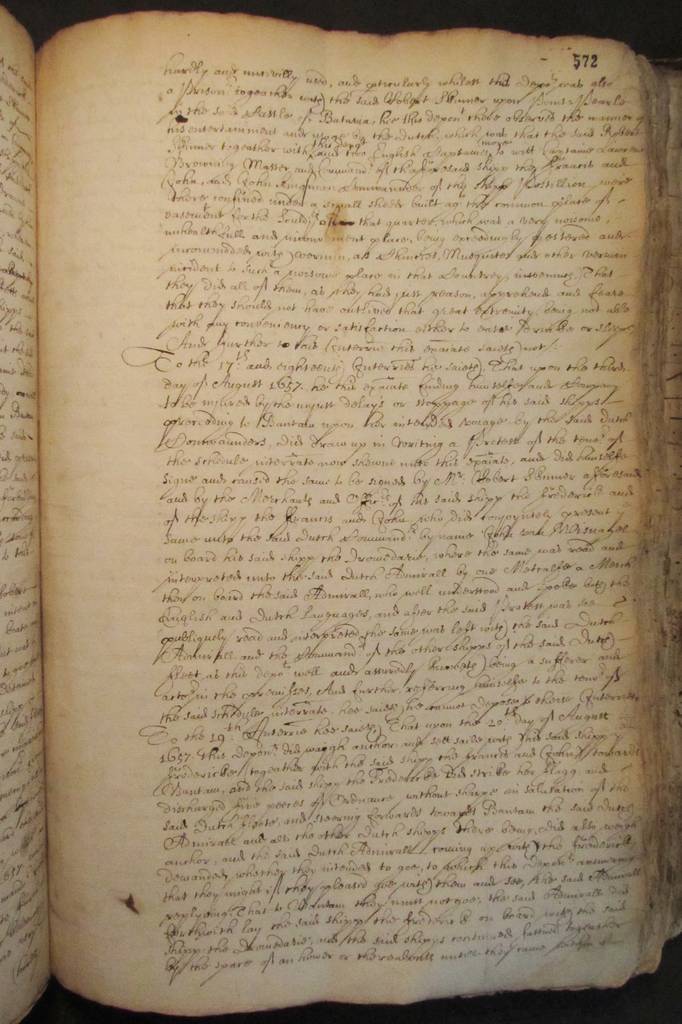 572
hardly and uncivilly used, and perticularly whilest this depo:t was also
a Prison:r together with the said Robert Skinner upon Point Pearle
in the said Castle of Batavia, hee this depon:t there observed the manner of
his entertainment and usage by the dutch, which was that the said Robert
Skinner together with this depo:t and two English Captaines more to witt Captaine Lawrence
Browning Master and Command:r of the aforesaid shipp the Francis and
John, and John Kingman Commaunder of the shipp Postillion, were
there confined under a small shedd built as the common place of
easement for the Sould:rs of that quarter, which was a very noisome,
unhealthfull and inconvenient place, being exceedingly pestered and
incommoded with vermin, as Muscetos and other vermin
incident to such a noisome place in that Countrey, insomuch That
they did all of them, as they had just reason, apprehend and feare
that they should not have outlived that great extremity, being not able
with any conveniency or satisfaction either to eate drinke or sleepe
And further to this Interrie this exa:iate saieth not /
To the 17:th and eighteenth Interries hee saieth, That upon the third
day of August 1657. hee this exa:iate finding himselfe and Company
to be injured by the unjust delayes or stoppage of his said shipps
proceeding to Bantam upon her intended voyage by the said dutch
Commaunders, did draw up in writing a Protest of the teno:r of
the schedule interrate now shewed unto this exa:iate, and did himselfe
signe and caused the same to be signed by M:r Robert Skinner aforesaid
and by the Merchants and Officers of his said shipp the Frederick and
of the shipp the Francis and John, who did conjoyntly present the
same unto the said dutch Command:r by name John van
on board his said shipp the Dromedarie, where the same was read and
interpreted unto the said dutch Admirall by one Metcalfe a Merch:t
then on board the said Admirall, who well understood and spoke both the
English and Dutch Languages, and after the said Protest was soe
publiquely read and interpreted, the same was left with the said dutch
Admirall and the Command:rs of the other shipps of the said dutch
fleet, as this depo:t well and assuredly knoweth being a sufferer and
actor in the premisses, And further, referring himselfe to the teno:r of
the said schedule interrate hee saieth he cannot depose to theis Interries
To the 19:th Interrie hee saieth, That upon the 20:th day of August
1657 this depon:t did weigh anchor and sett saile with his said shipp the
Frederick together with the said shipp the Francis and John towards
Bantam, and the said shipp the Frederick did strike her flagg and
discharged five peeces of Ordnance without sharpe in salutation of the
said dutch fleete, and steering forwards towards Bantam the said dutch
Admirall and all the other dutch shipps there being, did also weigh
anchor, and the said dutch Admirall coming up with the Frederick
demanded whether they intended to goe, to which this depo:t answering
that they might if they pleased goe with them and see, the said Admirall
replyed, That to Bantam they must not goe, the said Admirall did
forthwith lay the said shipp the Frederick on board with the said
shipp the Dromedarie, and the said shipps continued fastned together
by the space of an hower or thereabouts untill they came